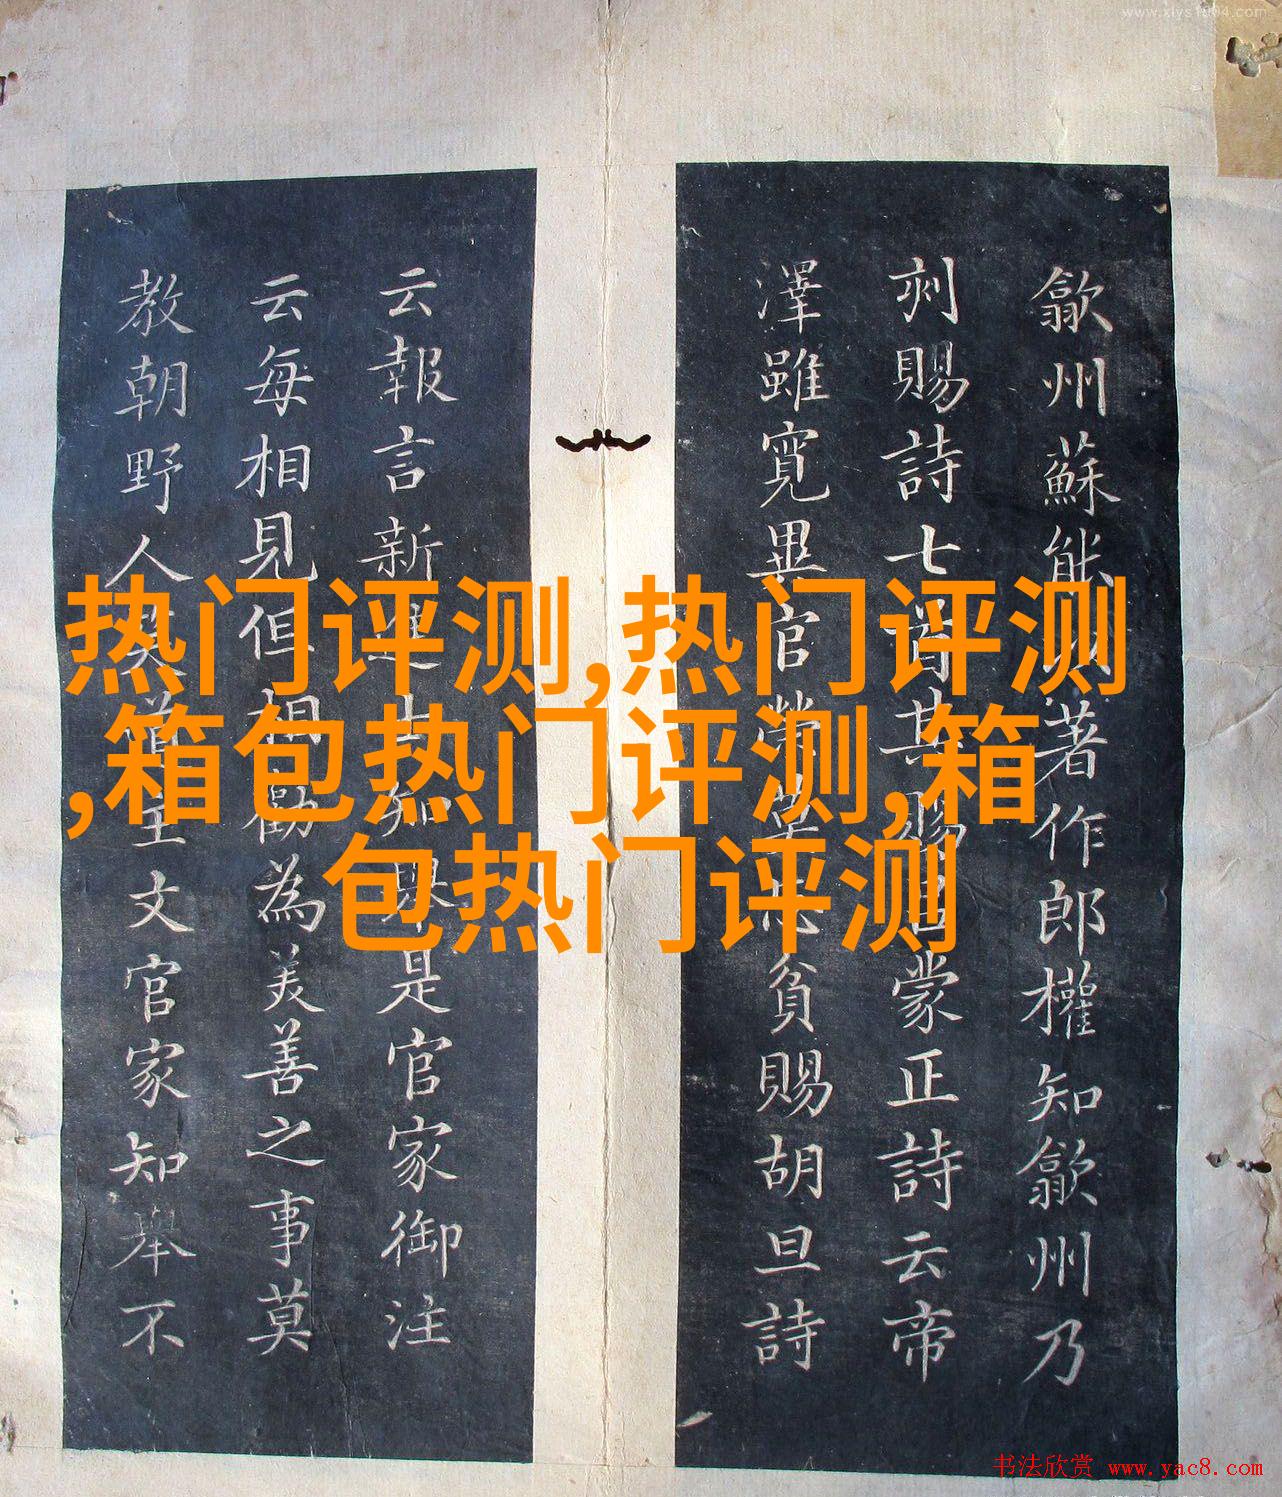 www.xiys1004.com
歙州蘇能著作郎權知歙州乃
刾賜詩七首其賜呂蒙正詩云帝
澤雖寬官榮忘貧賜胡旦詩
云報言新進士知舉是官家御注
云每相見但相勸為美善之事莫
教朝野人笑道主文官家知舉不
热门评测,热门评测
,箱包热门评测,箱
包热门评测
书法欣赏 www.yac8.com